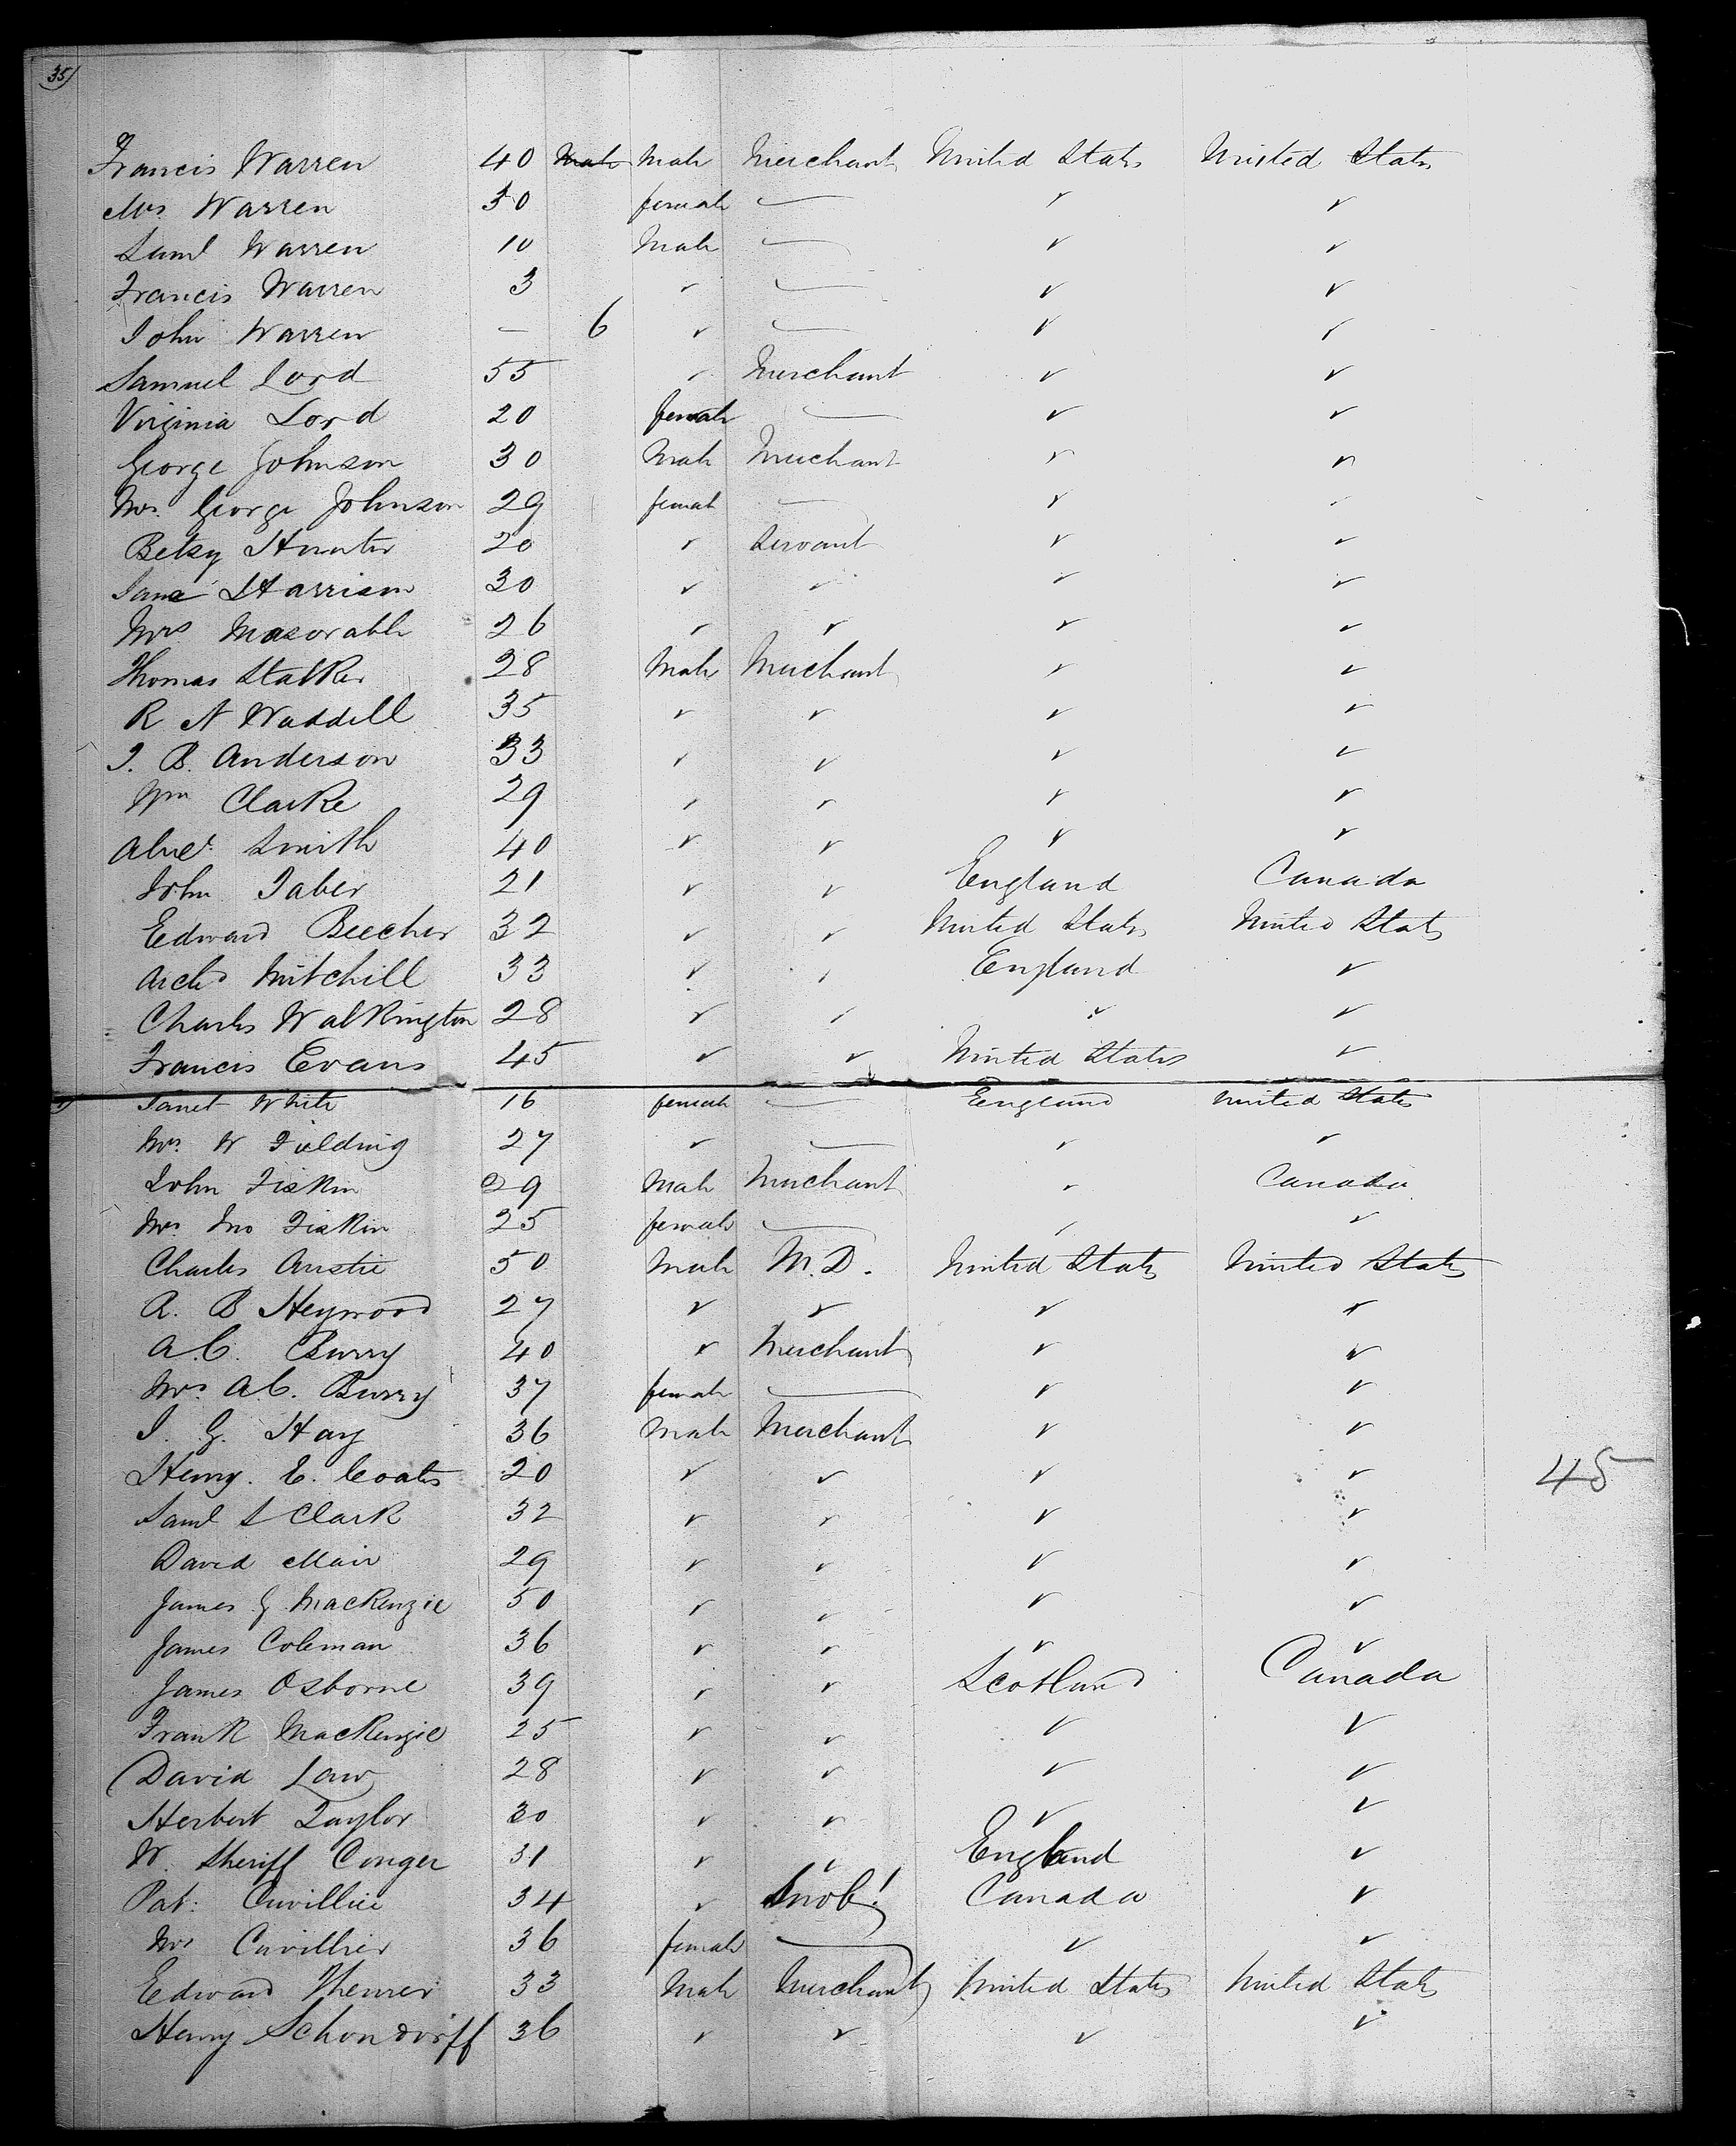 35)
Francis Warren 40 Male Male Merchant United States United States
Mrs Warren 30 female — ✓ ✓
Saml Warren 10 Male — ✓ ✓
Francis Warren 3 ✓ — ✓ ✓
John Warren — 6 ✓ — ✓ ✓
Samuel Lord 55 ✓ Merchant ✓ ✓
Virginia Lord 20 female — ✓ ✓
George Johnson 30 Male Merchant ✓ ✓
Mrs. George Johnson 29 female — ✓ ✓
Betsy Hunter 20 ✓ Servant ✓ ✓
Jane Harrison 30 ✓ ✓ ✓ ✓
Mrs 26 ✓ ✓ ✓ ✓
Thomas Stalker 28 Male Merchant ✓ ✓
R N Waddell 35 ✓ ✓ ✓ ✓
J. B. Anderson 33 ✓ ✓ ✓ ✓
Wm Clarke 29 ✓ ✓ ✓ ✓
Smith 40 ✓ ✓ ✓ ✓
John Taber 21 ✓ ✓ England Canada
Edward Beecher 32 ✓ ✓ United States United States
Archd Mitchill 33 ✓ ✓ England ✓
Charles Walkington 28 ✓ ✓ ✓ ✓
Francis Evans 45 ✓ ✓ United States ✓
Janet White 16 female — England United States
Mrs. W Fielding 27 ✓ — ✓ ✓
John Fiskin 29 Male Merchant ✓ Canada
Mrs. Jno Fiskin 25 female — ✓ ✓
Charles Anstie 50 Male M.D. United States United States
R. B Heywood 27 ✓ ✓ ✓ ✓
A.C. Burry 40 ✓ Merchant ✓ ✓
Mrs. A.C. Burry 37 female — ✓ ✓
J. G. Hay 36 Male Merchant ✓ ✓
Henry. E. Coates 20 ✓ ✓ ✓ ✓ 45
Saml S Clark 32 ✓ ✓ ✓ ✓
David Mair 29 ✓ ✓ ✓ ✓
James G MacKenzie 50 ✓ ✓ ✓ ✓
James Coleman 36 ✓ ✓ ✓ ✓
James Osborne 39 ✓ ✓ Scotland Canada
Frank MacKenzie 25 ✓ ✓ ✓ ✓
David Law 28 ✓ ✓ ✓ ✓
Herbert Taylor 30 ✓ ✓ ✓ ✓
W. Sheriff Conger 31 ✓ ✓ England ✓
Pat: Cuvillier 34 ✓ Snob! Canada ✓
Mrs Cuvillier 36 female — ✓ ✓
Edward 33 Male Merchant United States United States
Henry Schondorff 36 ✓ ✓ ✓ ✓